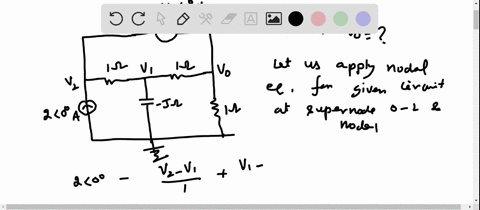 V₀ = ?
1Ω
1Ω
V₂
V₁
V₀
2<0° A
-JΩ
1Ω
Let us apply nodal
eq. for given circuit
at supernode 0-2 &
node1
2<0° - (V₂-V₁)/1 + V₁ -